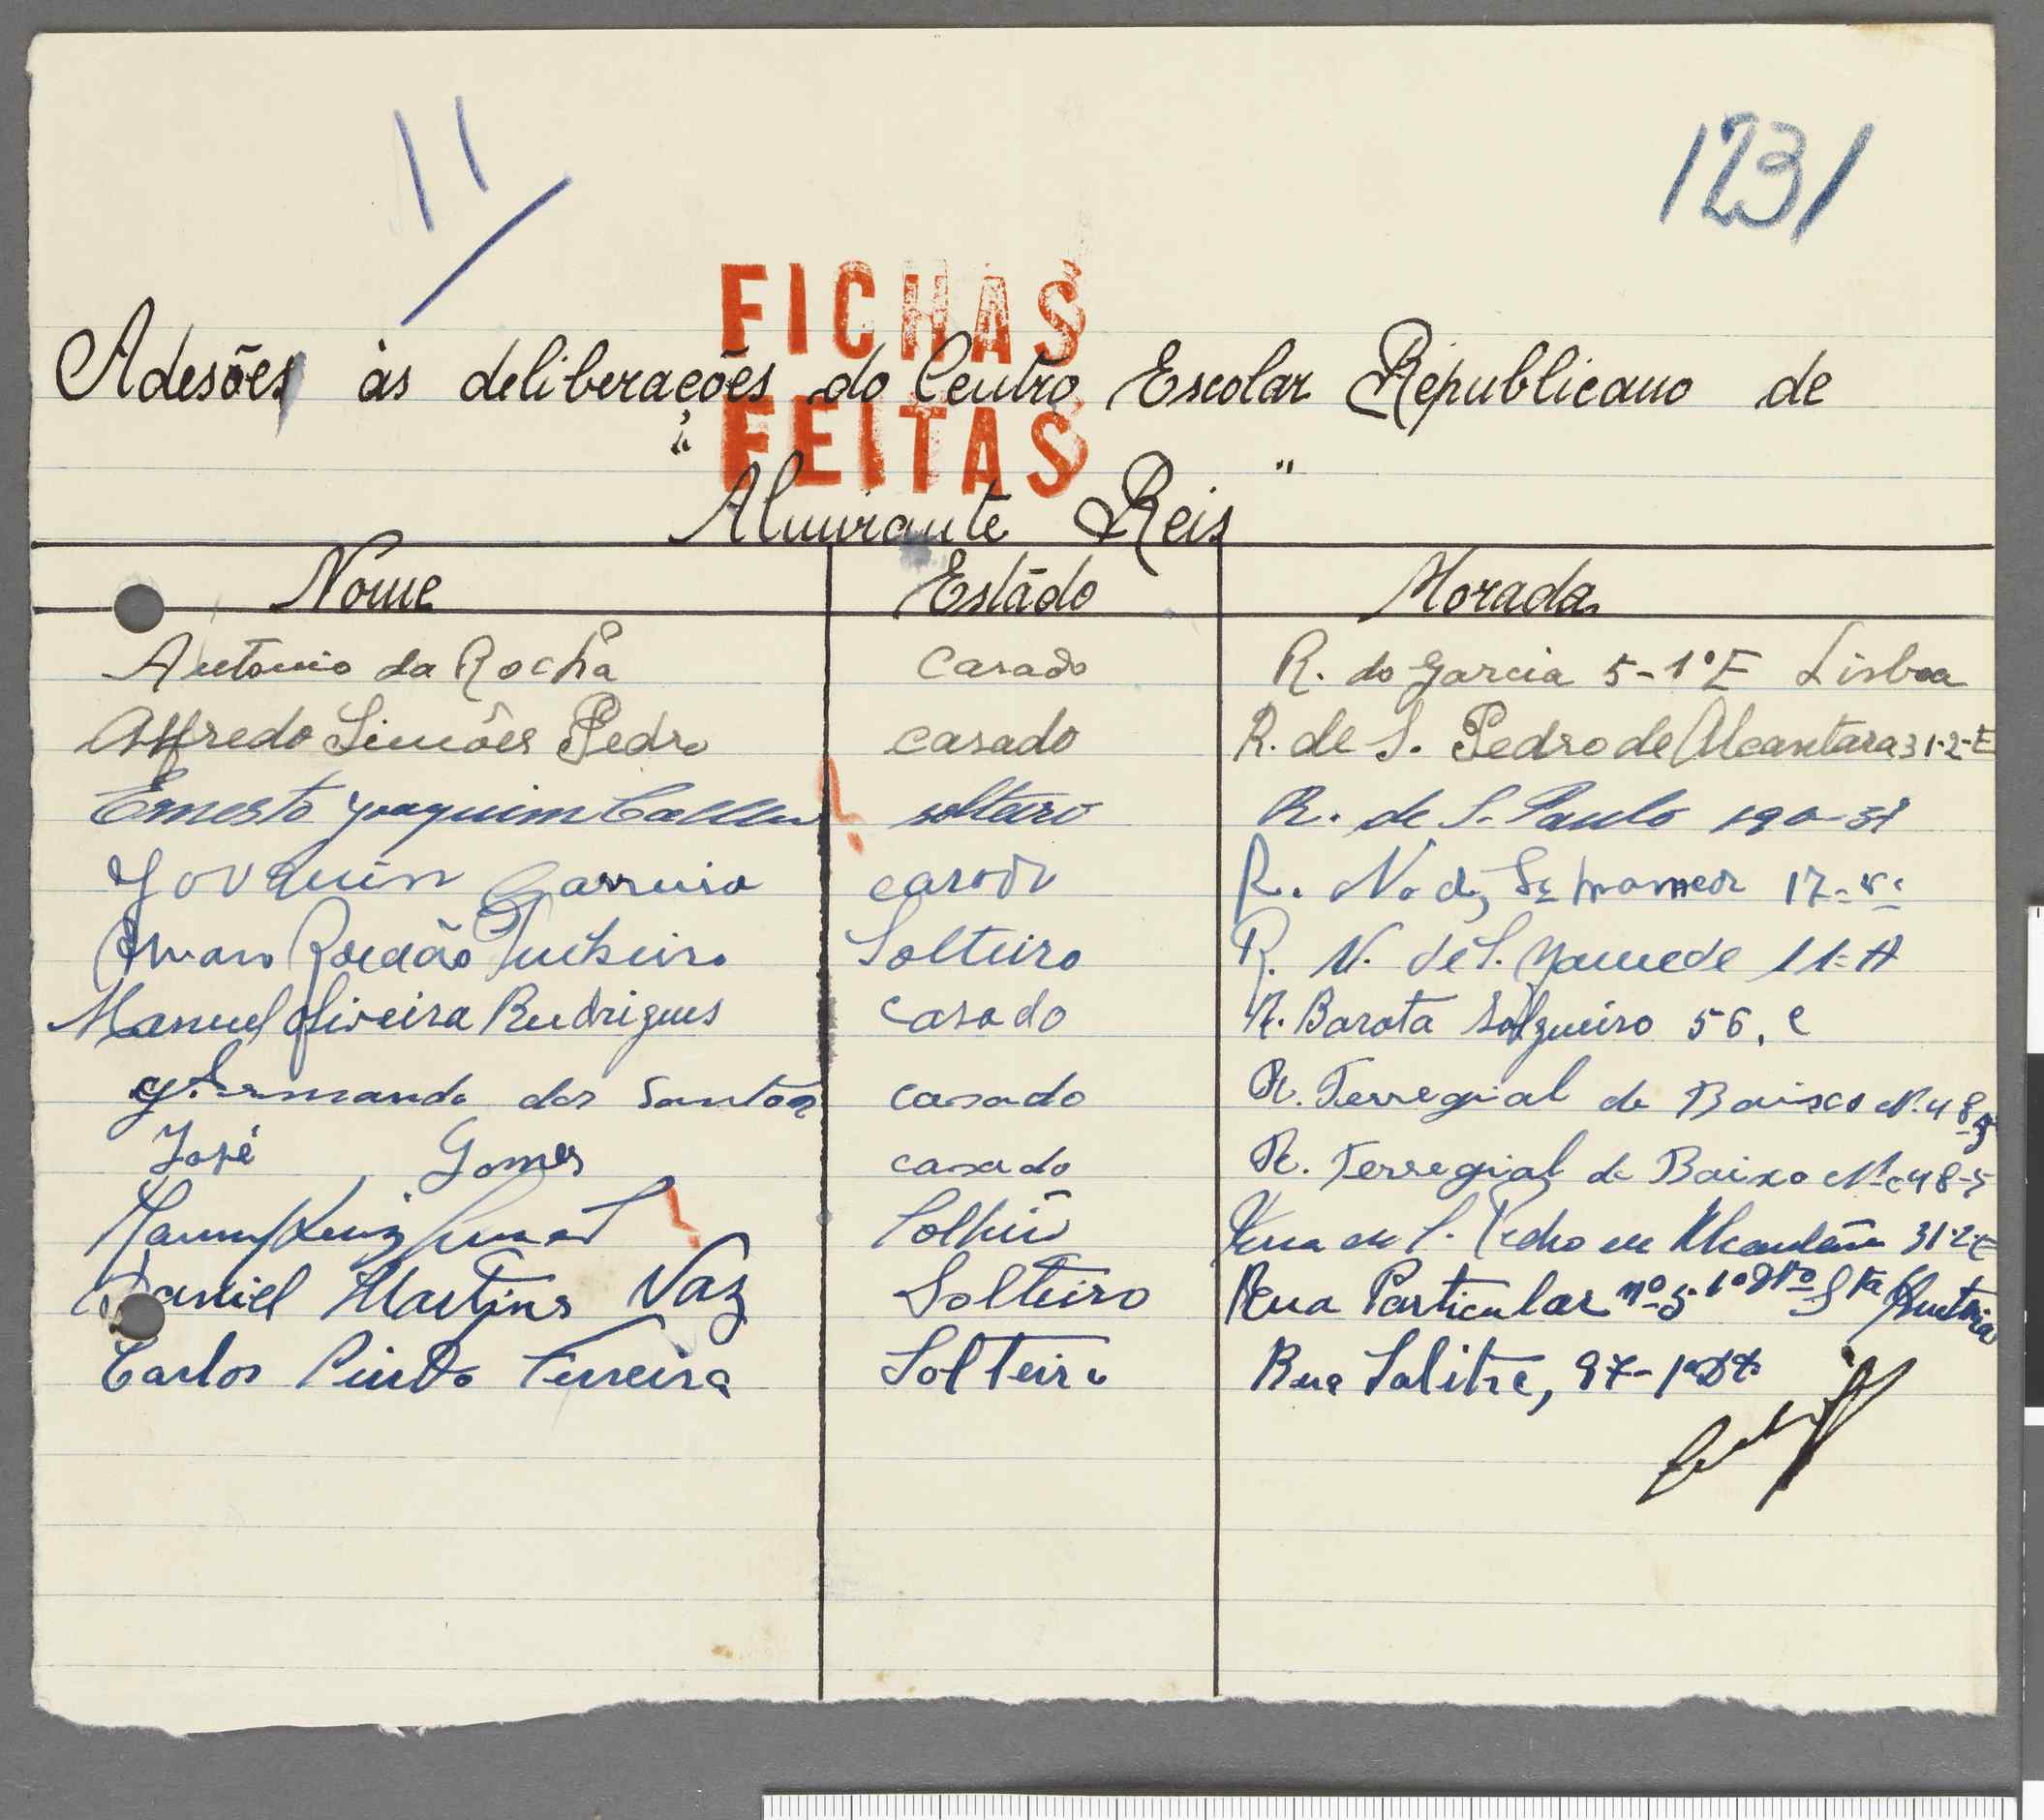 11
1231
FICHAS
FEITAS
Adesões às deliberações do Centro Escolar Republicano de
"Almirante Reis"
Nome Estádo Morada
Antonio da Rocha Casado R. do Garcia 5-1º E Lisboa
Alfredo Simões Pedro casado R. de S. Pedro de Alcantara 31-2-E
Ernesto Joaquim solteiro R. de S. Paulo 190-3º
casado R. N. de 17-
Rondão solteiro R. N. de S. Mamede 11-A
Manuel Oliveira Rudrigues casado R. Barata Salgueiro 56, c
Armando dos Santos casado R. Terregial de Baixo Nº 48
José Gomes casado R. Terregial de Baixo Nº 48-5
Rua de S. Pedro de Alcantara 31-2-E
Daniel Martins Vaz Solteiro Rua Particular nº 5 1º Dto
Carlos Pinto Ferreira Solteiro Rua Salitre, 97-1º Dto